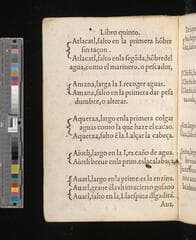 Libro quinto.
Atlacatl, salto en la primera hõbre
sin raçon.
Atlacatl, salto en la segūda, hõbre del
agua, como el marinero. o pescador,
Amana, larga la I. recoger aguas.
Amana, salto en la primera dar pesa
dumbre, o alterar.
Aquetza, largo en la primera colgar
aguas como la que haze el cacao.
Aquetza, salto è la I. alçar la cabeça.
Aiotli, largo en la I, es caño de agua.
Aiotli breue en la prim. es calabaça
Auatl, largo en la prime. es la enzina.
Auatl, graue è la vltima cierto gusano
Auatl, salto en la I. la espina dlgadita
Aua,